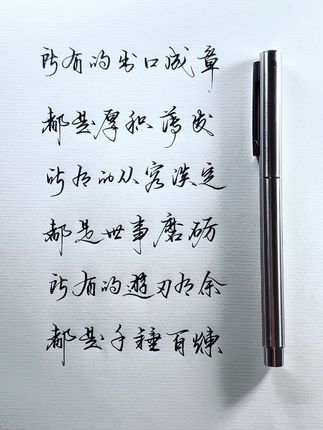 所有的出口成章
都是厚积薄发
所有的从容淡定
都是世事磨砺
所有的遊刃有余
都是千锤百煉